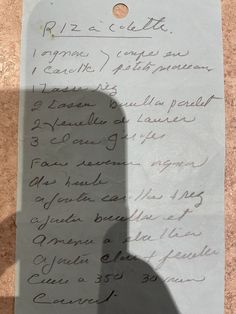 RIZ à Colette.
1 ognon } coupé en
1 carotte } petits morceaux
1 Tasse rez
2 Tasses bouillon poulet
2 feuilles de Laurier
3 clous girofle
Faire revenir ognon
dans huile
ajouter carottes + rez
ajouter bouillon et
amener a ebullition
ajouter clous + feuilles
Cuire a 350 30 min
Couvert